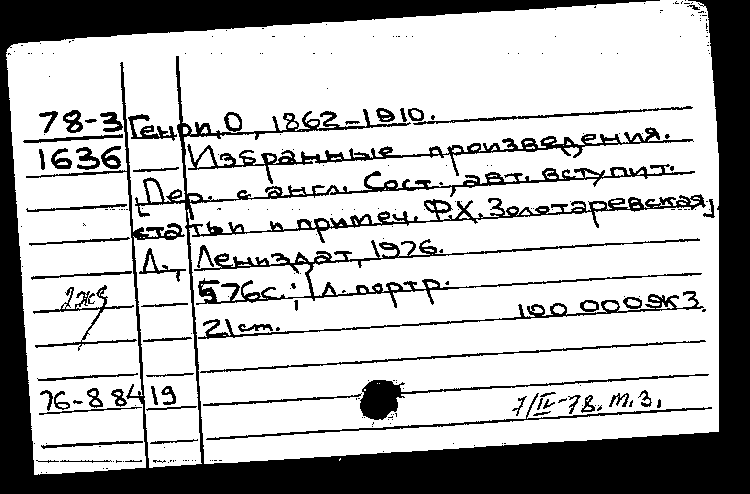 78-3 Генри, О, 1862-1910.
1636 Избранные произведения.
[Пер. с англ. Сост., авт. вступит.
статьи и примеч. Ф.Х. Золотаревская].
Л., Лениздат, 1976.
576с.; 1л. портр.
21см. 100 000экз.
76-88419
7/II-78. т.з.